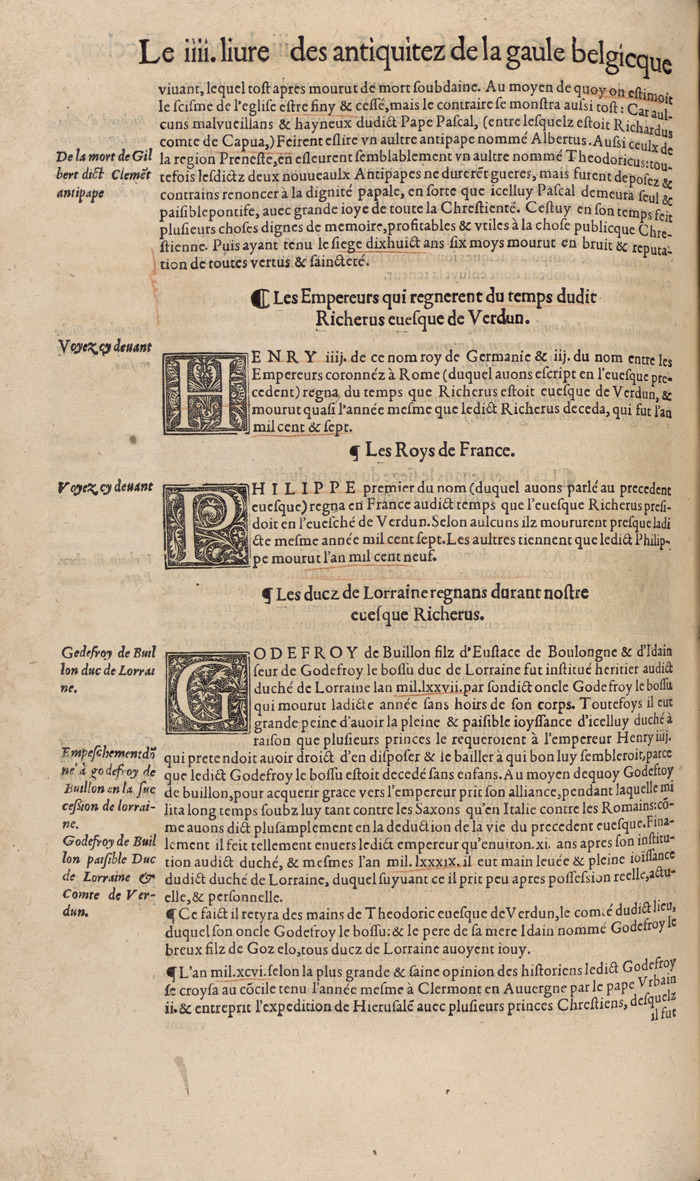 Le iiii. liure des antiquitez de la gaule belgicque
viuant, lequel tost apres mourut de mort soubdaine. Au moyen de quoy on estimoit
le scisme de l'eglise estre finy & cessé, mais le contraire se monstra aussi tost: Car aul-
cuns malvueillans & hayneux dudict Pape Pascal, (entre lesquelz estoit Richardus
comte de Capua,) Feirent eslire vn aultre antipape nommé Albertus. Aussi ceulx de
De la mort de Gil
bert dict Clemēt
antipape
la region Preneste, en esleurent semblablement vn aultre nommé Theodoricus: tou-
tefois lesdictz deux nouueaulx Antipapes ne durerēt gueres, mais furent deposez &
contrains renoncer à la dignité papale, en sorte que icelluy Pascal demeura seul &
paisible pontife, auec grande ioye de toute la Chrestienté. Cestuy en son temps feit
plusieurs choses dignes de memoire, profitables & vtiles à la chose publicque Chre-
stienne. Puis ayant tenu le siege dixhuict ans six moys mourut en bruit & reputa-
tion de toutes vertus & saincteté.
¶ Les Empereurs qui regnerent du temps dudit
Richerus euesque de Verdun.
Voyez cy deuant
HENRY iiij. de ce nom roy de Germanie & iij. du nom entre les
Empereurs coronnéz à Rome (duquel auons escript en l'euesque pre-
cedent) regna du temps que Richerus estoit euesque de Verdun, &
mourut quasi l'année mesme que ledict Richerus deceda, qui fut l'an
mil cent & sept.
¶ Les Roys de France.
Voyez cy deuant
PHILIPPE premier du nom (duquel auons parlé au precedent
euesque) regna en France audict temps que l'euesque Richerus presi-
doit en l'euesché de Verdun. Selon aulcuns ilz moururent presque ladi
cte mesme année mil cent sept. Les aultres tiennent que ledict Philip-
pe mourut l'an mil cent neuf.
¶ Les ducz de Lorraine regnans durant nostre
euesque Richerus.
Gedefroy de Buil
lon duc de Lorrai
ne.
GODEFROY de Buillon filz d'Eustace de Boulongne & d'Idain
seur de Godefroy le bossu duc de Lorraine fut institué heritier audict
duché de Lorraine lan mil.lxxvii. par sondict oncle Godefroy le bossu
qui mourut ladicte année sans hoirs de son corps. Toutefoys il eut
grande peine d'auoir la pleine & paisible ioyssance d'icelluy duché à
raison que plusieurs princes le requeroient à l'empereur Henry iiij.
Empeschement dō
né à godefroy de
Buillon en la suc
cession de lorrai-
ne.
qui pretendoit auoir droict d'en disposer & le bailler à qui bon luy sembleroit, parce
que ledict Godefroy le bossu estoit decedé sans enfans. Au moyen dequoy Godefroy
de buillon, pour acquerir grace vers l'empereur prit son alliance, pendant laquelle mi
lita long temps soubz luy tant contre les Saxons qu'en Italie contre les Romains: cō-
me auons dict plusamplement en la deduction de la vie du precedent euesque. Fina-
Godefroy de Buil
lon paisible Duc
de Lorraine &
Comte de Ver-
dun.
lement il feit tellement enuers ledict empereur qu'enuiron. xi. ans apres son institu-
tion audit duché, & mesmes l'an mil. lxxxix. il eut main leuée & pleine ioissance
dudict duché de Lorraine, duquel suyuant ce il prit peu apres possession reelle, actu-
elle, & personnelle.
¶ Ce faict il retyra des mains de Theodoric euesque de Verdun, le comté dudict lieu,
duquel son oncle Godefroy le bossu: & le pere de sa mere Idain nommé Godefroy le
breux filz de Gozelo, tous ducz de Lorraine auoyent iouy.
¶ L'an mil.xcvi. selon la plus grande & saine opinion des historiens ledict Godefroy
se croysa au cōcile tenu l'année mesme à Clermont en Auuergne par le pape Vrbain
ii. & entreprit l'expedition de Hierusalē auec plusieurs princes Chrestiens, desquelz
il fut